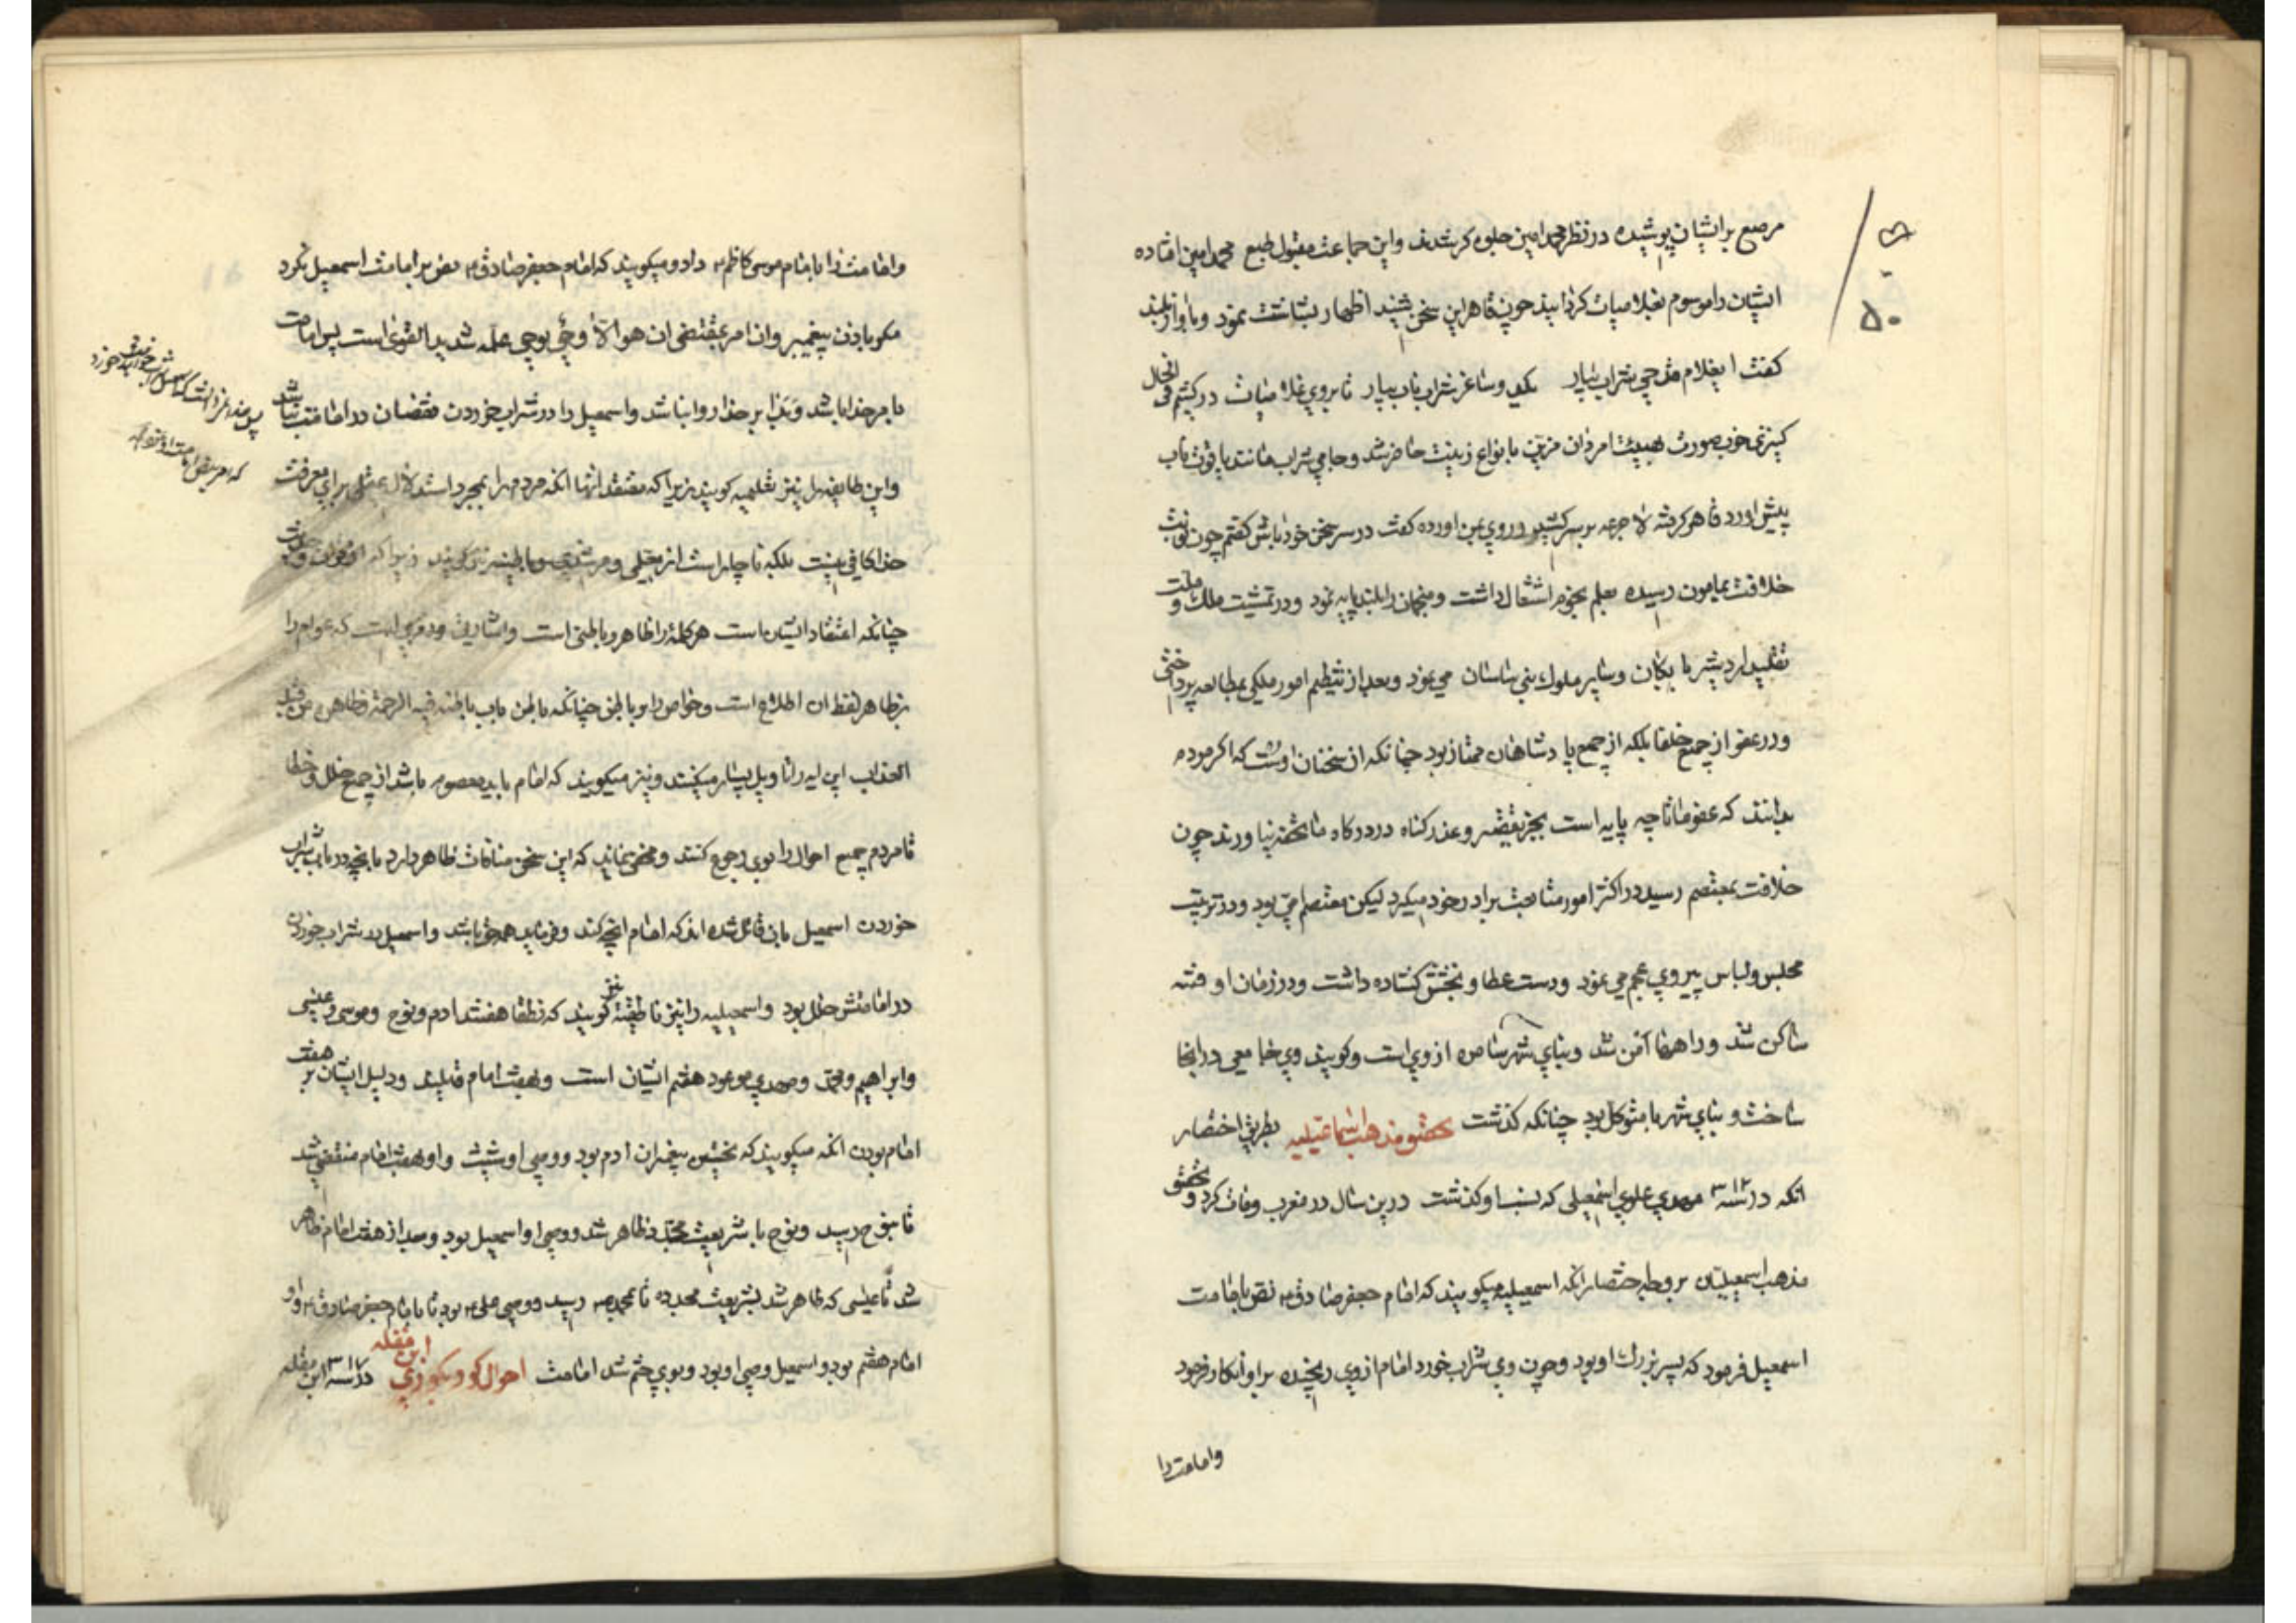 مرصع بر ایشان پوشیده در نظر محمد امین جلوه کر شدند و این جماعت مقبول طبع محمد امین افتاده
ایشان را موسوم بغلامیات کردانید چون قاهر این سخن شنید اظهار بشاشت نمود و باواز بلند
کفت ای غلام قدحی شراب بیار یکی و ساغر شراب ناب بیار تا بروی غلامیات درکشم فی الحال
کنیزکی خوب صورت بهیئت امردان مزین بانواع زینت حاضر شد و جامی شراب مانند یاقوت ناب
پیش اورد قاهر کرفته لاجرعه بر سر کشید و روی بمن اورده کفت در سر سخن خود باش کفتم چون نوبت
خلافت بمامون رسید بعلم نجوم اشتغال داشت و منجمان را بلند پایه نمود و در تمشیت ملک و ملت
تقلید اردشیر بابکان و سایر ملوک بنی ساسان می نمود و بعد از تنظیم امور ملکی بمطالعه پرداختی
و در عفو از جمیع خلفا بلکه از جمیع پادشاهان ممتاز بود چنانکه از سخنان اوست که اکر مردم
بدانند که عفو ما تا چه پایه است بجز تقصیر و عذر کناه در درکاه ما تحفه نیاورند چون
خلافت بمعتصم رسید در اکثر امور متابعت برادر خود میکرد لیکن معتصم امی بود و در ترتیب
مجلس و لباس پیروی عجم می نمود و دست عطا و بخشش کشاده داشت و در زمان او فتنه
ساکن شد و راهها امن شد و بنای شهر سامره از وی است و کویند وی جامعی در انجا
ساخت و بنای شهر با متوکل بود چنانکه کذشت تحقیق مذهب اسماعیلیه بطریق اختصار
انکه در سنه ۳۱۲ مهدی علوی اسمعیلی که نسب او کذشت درین سال در مغرب وفات کرد و تحقیق
مذهب اسمعیلیان بر وجه اختصار انکه اسمعیلیه میکویند که امام جعفر صادق نص بامامت
اسمعیل فرمود که پسر بزرک او بود و چون وی شراب خورد امام از وی رنجیده بر او انکار فرمود
وامامت را
وامامت را بامام موسی کاظم داد و میکویند که امام جعفر صادق نص بر امامت اسمعیل نکرد
مکر باذن پیغمبر و ان امر بمقتضی ان هو الا وحی یوحی علمه شدید القوی است پس امامت
بامر خدا باشد و بدا بر خدا روا نباشد و اسمعیل را در شراب خوردن نقصان در امامت نباشد
و این طایفه را نیز تعلیمیه کویند زیرا که معتقد انها انکه مردم را بمجرد استدلال عقلی برای معرفت
خدا کافی نیست بلکه ناچار است از معلمی و مرشدی و باطنیه نیز کویند زیرا که
چنانکه اعتقاد ایشان است هر کلمه را ظاهر و باطنی است و اشارتی و رمزی است که عوام را
بر ظاهر لفظ ان اطلاع است و خواص را بر باطن چنانکه باطن باب باطنه فیه الرحمة و ظاهره من قبله
العذاب این ایه را تاویل بسیار میکنند و نیز میکویند که امام باید معصوم باشد از جمیع خلل و خطا
تا مردم جمیع احوال را بوی رجوع کنند و مخفی نماند که این سخن منافات ظاهر دارد بانچه در باب شراب
خوردن اسمعیل بان قائل شده اند که امام انچه کند و فرماید همه حق باشد و اسمعیل در شراب خوردن
در امامتش خلل بود و اسمعیلیه را نیز ناطقیه نیز کویند که نطقا هفتند ادم و نوح و موسی و عیسی
و ابراهیم و محمد و مهدی موعود هفتم ایشان است و بهفت امام قایلند و دلیل ایشان بر هفت
امام بودن انکه میکویند که نخستین پیغمبران ادم بود و وصی او شیث و او بهفت امام منقضی شد
تا بنوح رسید و نوح با شریعت مجدد ظاهر شد و وصی او اسمعیل بود و بعد از هفت امام ظاهر
شد تا عیسی که ظاهر شد بشریعت مجدده تا بمحمد رسید و وصی علی بود تا بامام جعفر صادق و او
امام هفتم بود و اسمعیل وصی او بود و بوی ختم شد امامت احوال کور و بکوزی ابن مقله در سنه ۳۱۷ ابن مقله